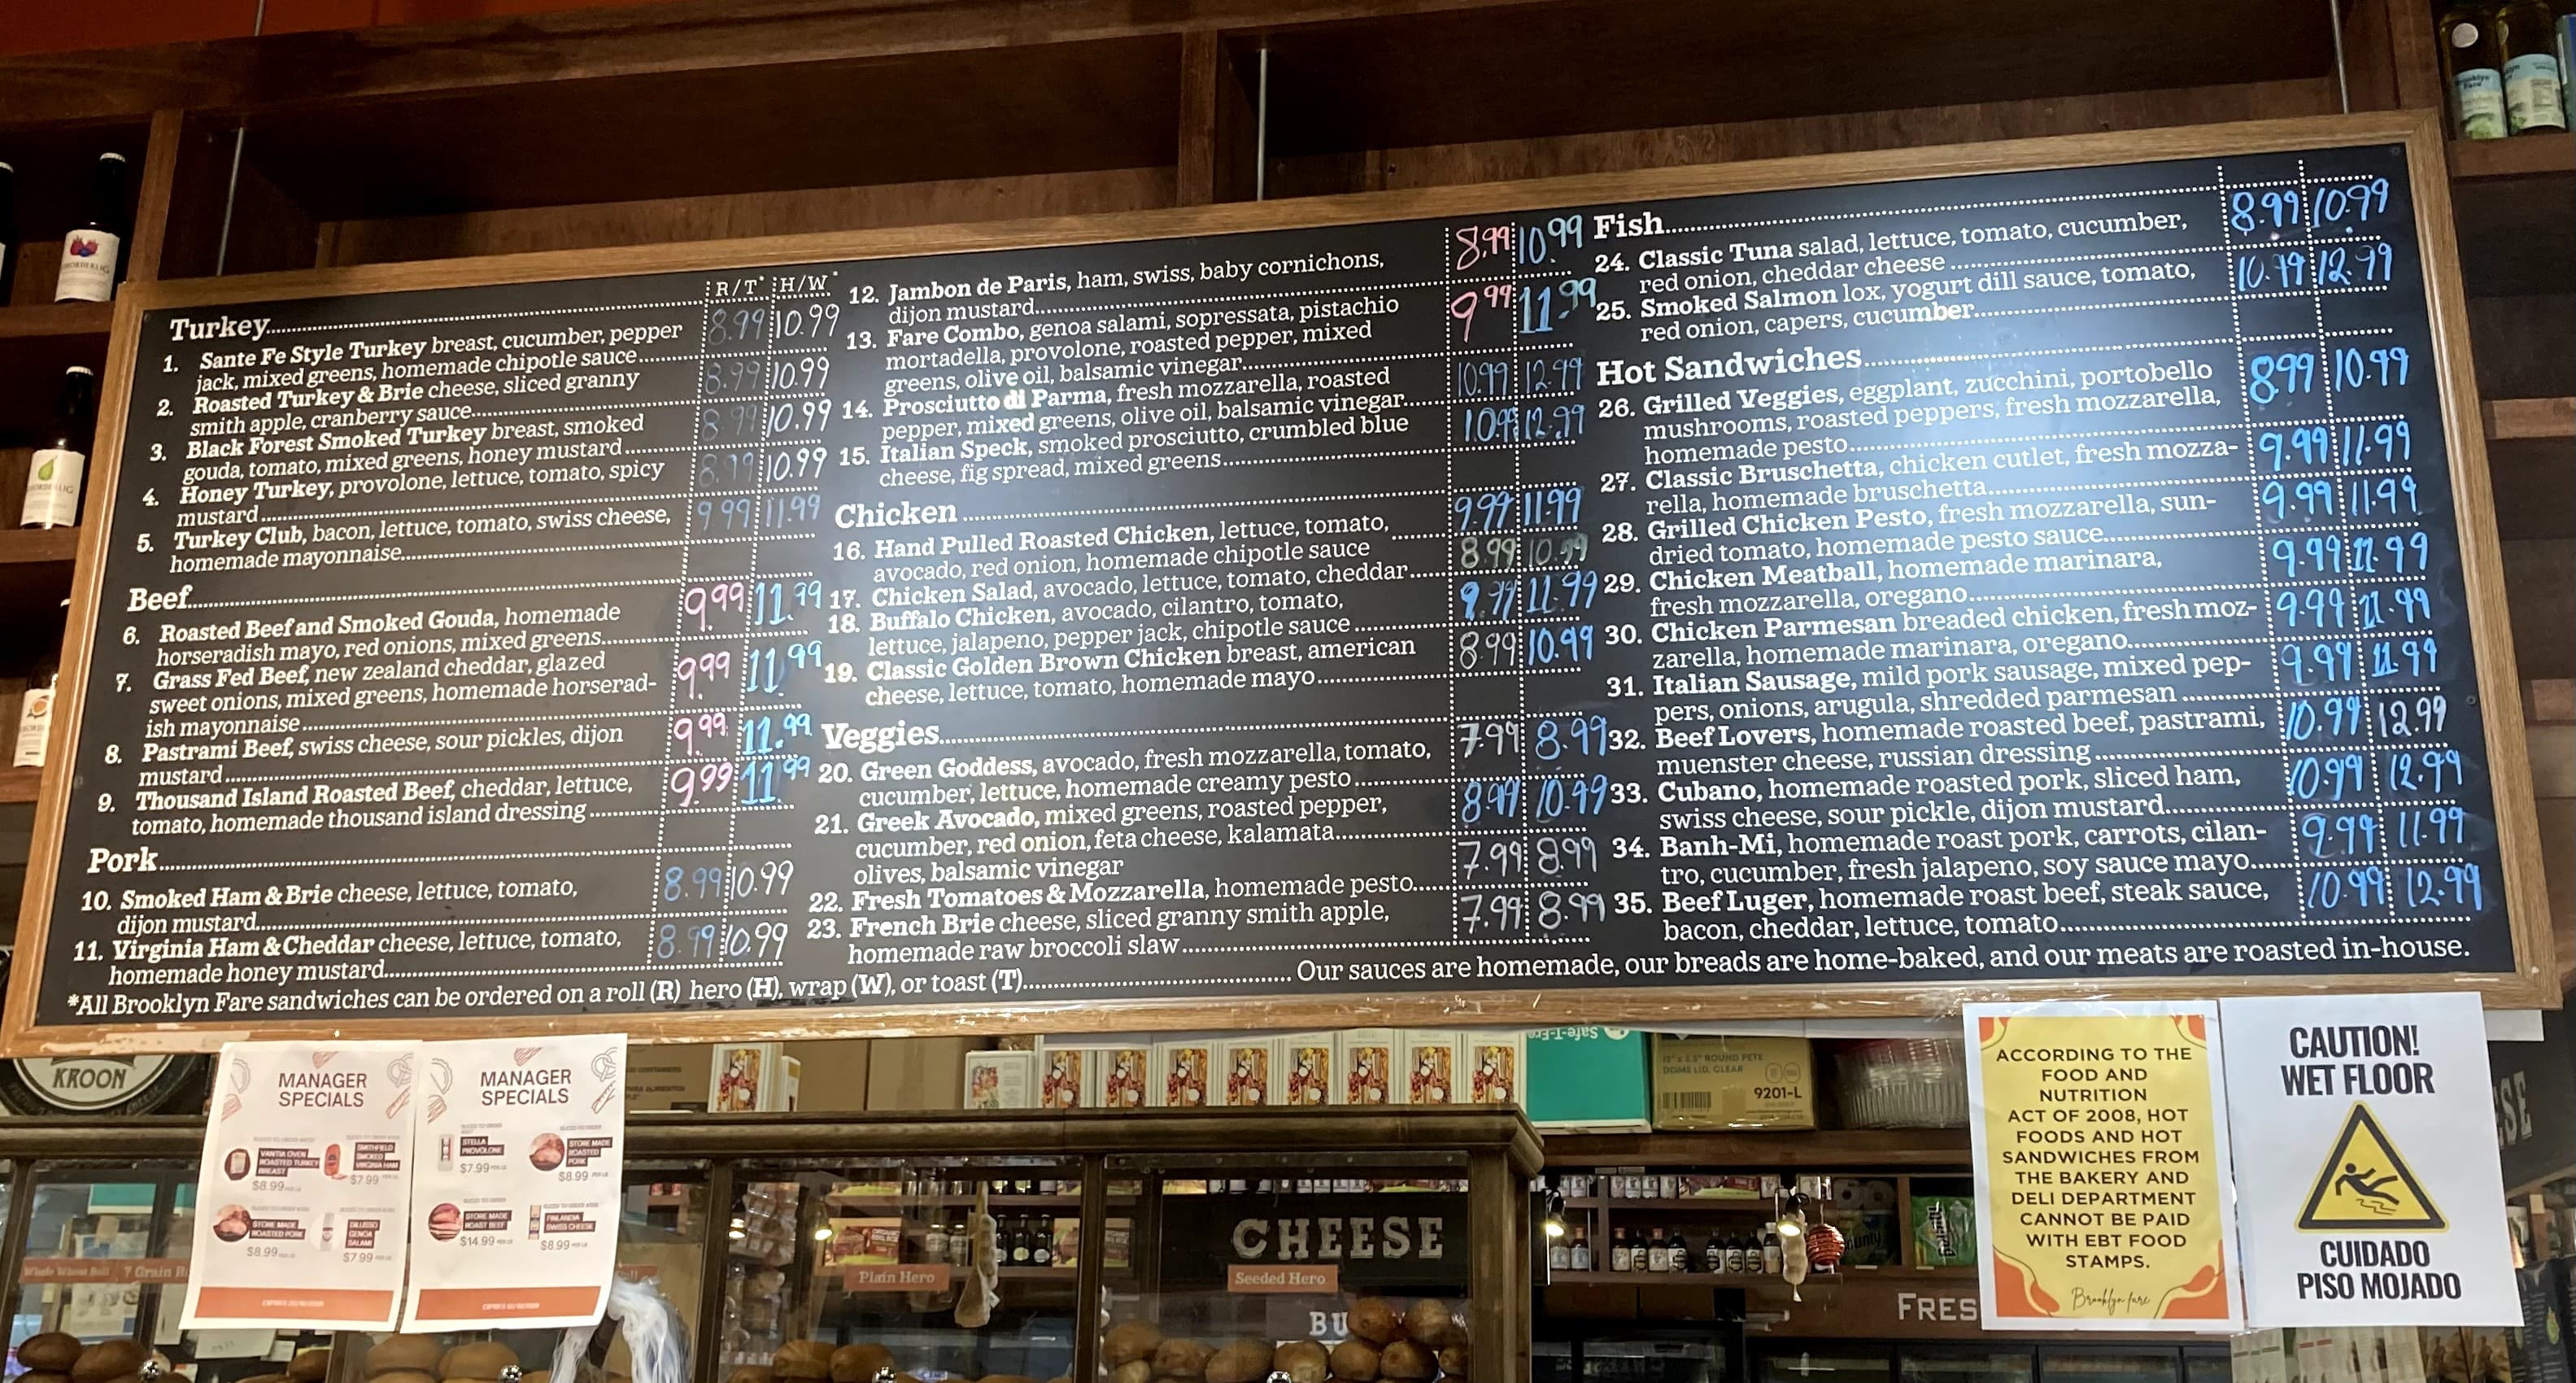 R/T* H/W*
Turkey
8.99 10.99
1. Sante Fe Style Turkey breast, cucumber, pepper
jack, mixed greens, homemade chipotle sauce
8.99 10.99
2. Roasted Turkey & Brie cheese, sliced granny
smith apple, cranberry sauce
8.99 10.99
3. Black Forest Smoked Turkey breast, smoked
gouda, tomato, mixed greens, honey mustard
8.99 10.99
4. Honey Turkey, provolone, lettuce, tomato, spicy
mustard
9.99 11.99
5. Turkey Club, bacon, lettuce, tomato, swiss cheese,
homemade mayonnaise
Beef
9.99 11.99
6. Roasted Beef and Smoked Gouda, homemade
horseradish mayo, red onions, mixed greens
9.99 11.99
7. Grass Fed Beef, new zealand cheddar, glazed
sweet onions, mixed greens, homemade horserad-
ish mayonnaise
9.99 11.99
8. Pastrami Beef, swiss cheese, sour pickles, dijon
mustard
9.99 11.99
9. Thousand Island Roasted Beef, cheddar, lettuce,
tomato, homemade thousand island dressing
Pork
8.99 10.99
10. Smoked Ham & Brie cheese, lettuce, tomato,
dijon mustard
8.99 10.99
11. Virginia Ham & Cheddar cheese, lettuce, tomato,
homemade honey mustard
8.99 10.99
12. Jambon de Paris, ham, swiss, baby cornichons,
dijon mustard
9.99 11.99
13. Fare Combo, genoa salami, sopressata, pistachio
mortadella, provolone, roasted pepper, mixed
greens, olive oil, balsamic vinegar
10.99 12.99
14. Prosciutto di Parma, fresh mozzarella, roasted
pepper, mixed greens, olive oil, balsamic vinegar
10.99 12.99
15. Italian Speck, smoked prosciutto, crumbled blue
cheese, fig spread, mixed greens
Chicken
9.99 11.99
16. Hand Pulled Roasted Chicken, lettuce, tomato,
avocado, red onion, homemade chipotle sauce
8.99 10.99
17. Chicken Salad, avocado, lettuce, tomato, cheddar
9.99 11.99
18. Buffalo Chicken, avocado, cilantro, tomato,
lettuce, jalapeno, pepper jack, chipotle sauce
8.99 10.99
19. Classic Golden Brown Chicken breast, american
cheese, lettuce, tomato, homemade mayo
Veggies
7.99 8.99
20. Green Goddess, avocado, fresh mozzarella, tomato,
cucumber, lettuce, homemade creamy pesto
8.99 10.99
21. Greek Avocado, mixed greens, roasted pepper,
cucumber, red onion, feta cheese, kalamata
olives, balsamic vinegar
7.99 8.99
22. Fresh Tomatoes & Mozzarella, homemade pesto
7.99 8.99
23. French Brie cheese, sliced granny smith apple,
homemade raw broccoli slaw
Fish
8.99 10.99
24. Classic Tuna salad, lettuce, tomato, cucumber,
red onion, cheddar cheese
10.99 12.99
25. Smoked Salmon lox, yogurt dill sauce, tomato,
red onion, capers, cucumber
Hot Sandwiches
8.99 10.99
26. Grilled Veggies, eggplant, zucchini, portobello
mushrooms, roasted peppers, fresh mozzarella,
homemade pesto
9.99 11.99
27. Classic Bruschetta, chicken cutlet, fresh mozza-
rella, homemade bruschetta
9.99 11.99
28. Grilled Chicken Pesto, fresh mozzarella, sun-
dried tomato, homemade pesto sauce
9.99 11.99
29. Chicken Meatball, homemade marinara,
fresh mozzarella, oregano
9.99 11.99
30. Chicken Parmesan breaded chicken, fresh moz-
zarella, homemade marinara, oregano
9.99 11.99
31. Italian Sausage, mild pork sausage, mixed pep-
pers, onions, arugula, shredded parmesan
10.99 12.99
32. Beef Lovers, homemade roasted beef, pastrami,
muenster cheese, russian dressing
10.99 12.99
33. Cubano, homemade roasted pork, sliced ham,
swiss cheese, sour pickle, dijon mustard
9.99 11.99
34. Banh-Mi, homemade roast pork, carrots, cilan-
tro, cucumber, fresh jalapeno, soy sauce mayo
10.99 12.99
35. Beef Luger, homemade roast beef, steak sauce,
bacon, cheddar, lettuce, tomato
*All Brooklyn Fare sandwiches can be ordered on a roll (R) hero (H), wrap (W), or toast (T) Our sauces are homemade, our breads are home-baked, and our meats are roasted in-house.
KROON
MANAGER
SPECIALS
VANTIA OVEN
ROASTED TURKEY
BREAST
$8.99
SMITHFIELD
SMOKED
VIRGINIA HAM
$7.99
STORE MADE
ROASTED PORK
$8.99
GENOA
SALAMI
$7.99
MANAGER
SPECIALS
STELLA
PROVOLONE
$7.99
STORE MADE
ROASTED
PORK
$8.99
STORE MADE
ROAST BEEF
$14.99
FINLANDIA
SWISS CHEESE
$8.99
12" x 2.5" ROUND PETE
DOME LID, CLEAR
9201-L
ACCORDING TO THE
FOOD AND
NUTRITION
ACT OF 2008, HOT
FOODS AND HOT
SANDWICHES FROM
THE BAKERY AND
DELI DEPARTMENT
CANNOT BE PAID
WITH EBT FOOD
STAMPS.
Brooklyn fare
CAUTION!
WET FLOOR
CUIDADO
PISO MOJADO
CHEESE
Whole Wheat Roll
7 Grain
Plain Hero
Seeded Hero
BU
FRES